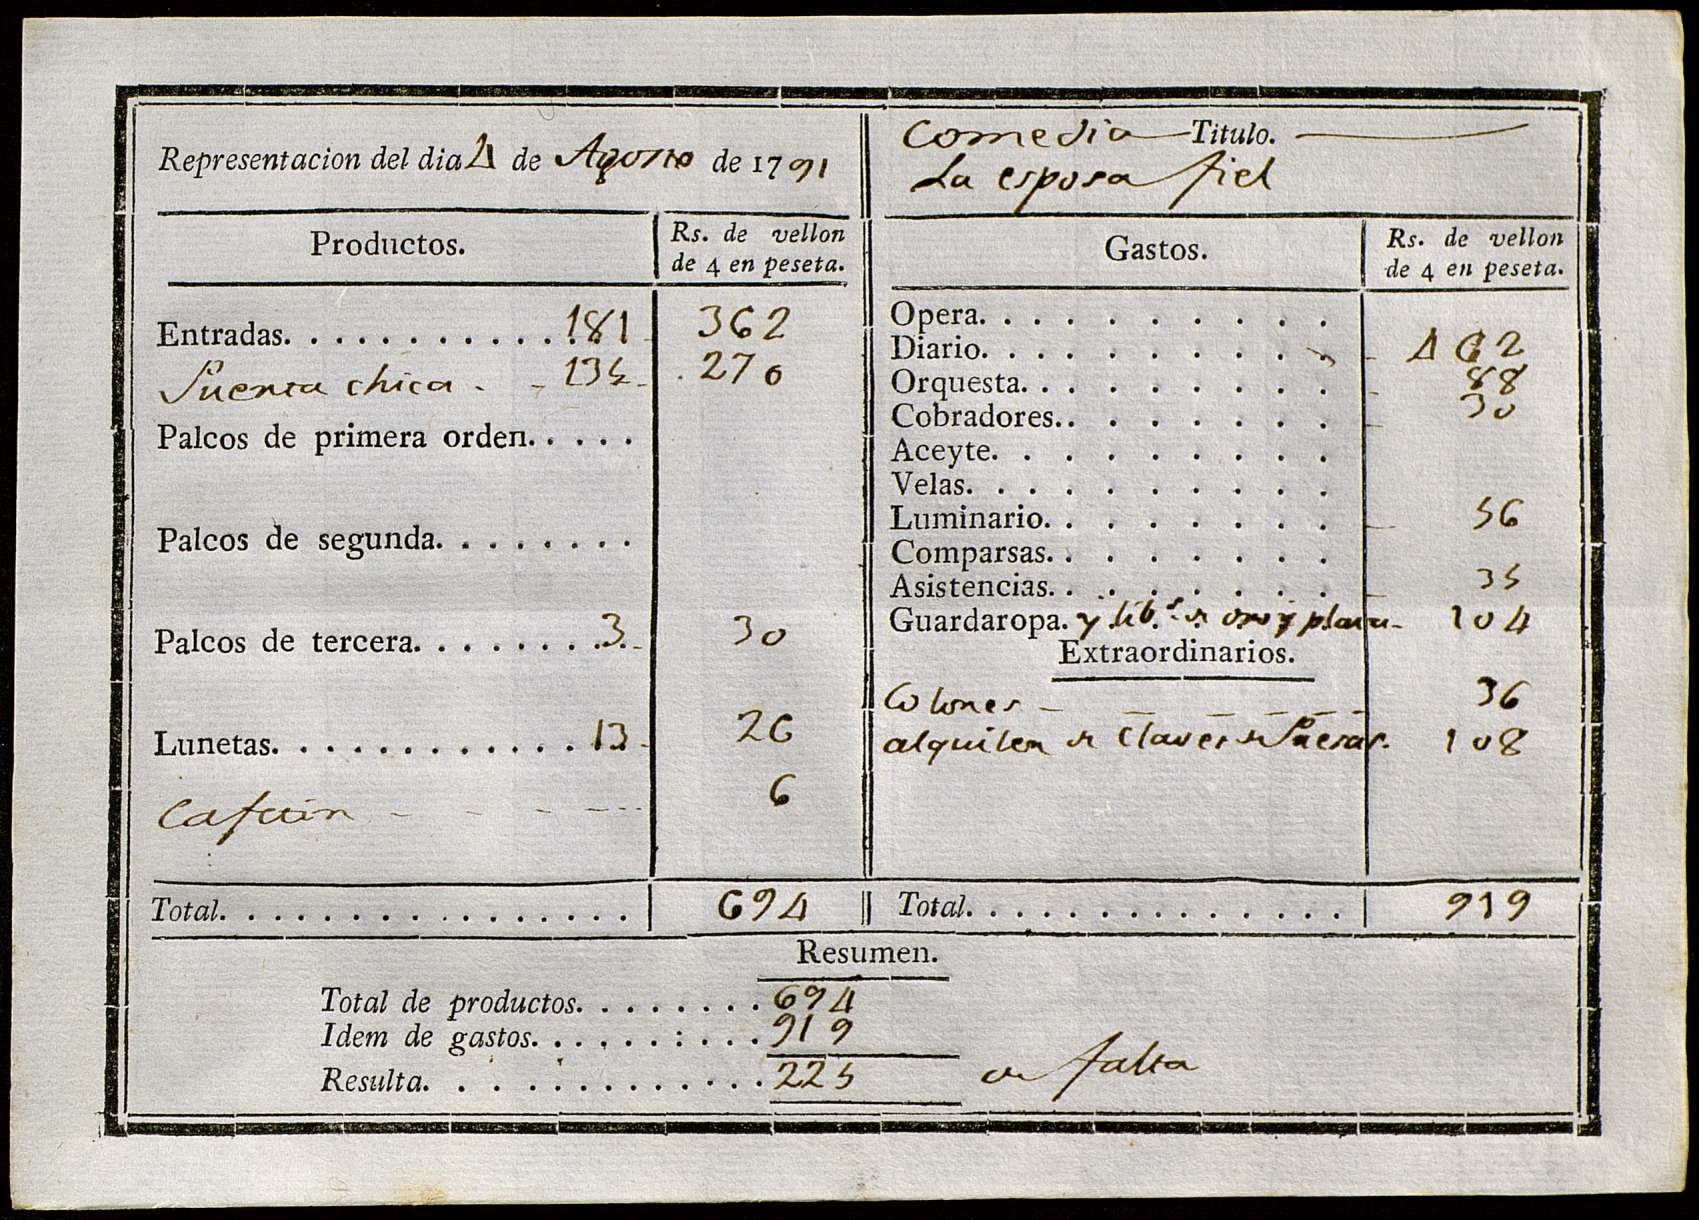 Representacion del dia 4 de Agosto de 1791
Comedia Titulo.
La esposa fiel
Productos. Rs. de vellon de 4 en peseta.
Entradas. 181 362
Puerta chica 135 270
Palcos de primera orden.
Palcos de segunda.
Palcos de tercera. 3 30
Lunetas. 13 26
Cafetin 6
Total. 694
Gastos. Rs. de vellon de 4 en peseta.
Opera.
Diario. 462
Orquesta. 88
Cobradores. 30
Aceyte.
Velas.
Luminario. 56
Comparsas.
Asistencias. 35
Guardaropa. y lib.s de oro y plata 104
Extraordinarios.
36
alquiler de 108
Total. 919
Resumen.
Total de productos. 694
Idem de gastos. 919
Resulta. 225 de falta